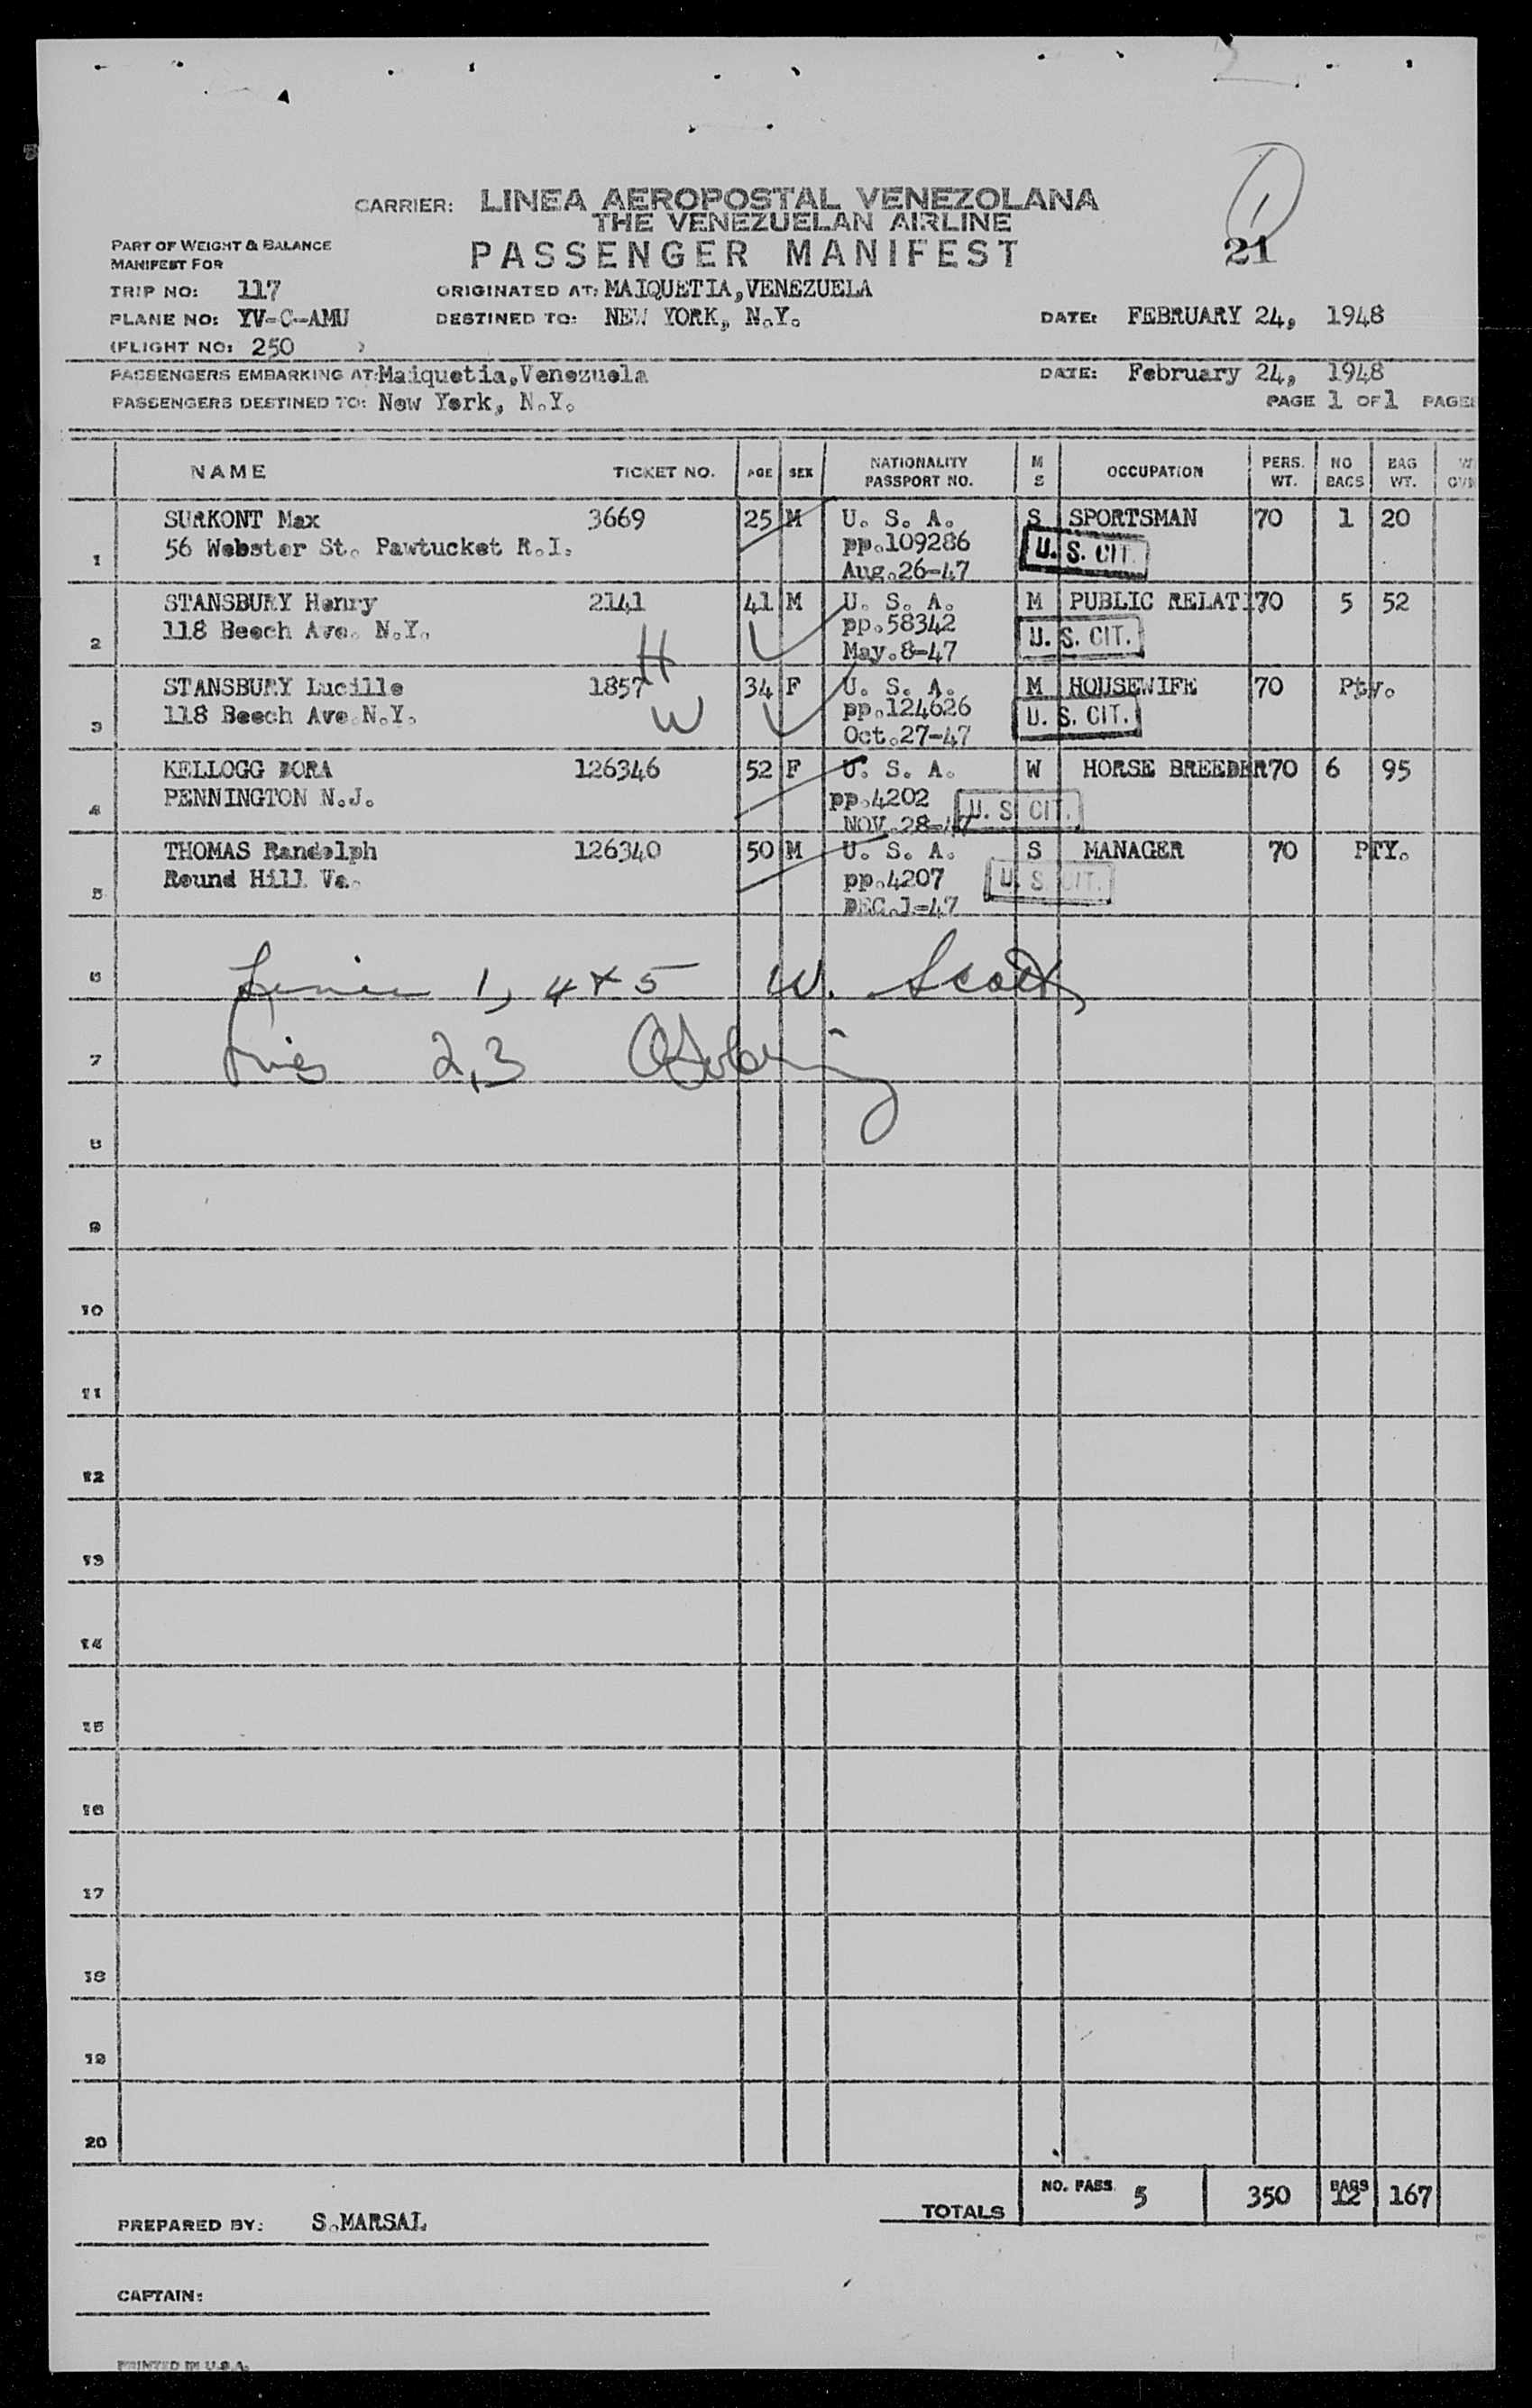 CARRIER: LINEA AEROPOSTAL VENEZOLANA
THE VENEZUELAN AIRLINE
PASSENGER MANIFEST
1
21
PART OF WEIGHT & BALANCE
MANIFEST FOR
TRIP NO: 117 ORIGINATED AT: MAIQUETIA, VENEZUELA
PLANE NO: YV-C-AMU DESTINED TO: NEW YORK, N.Y. DATE: FEBRUARY 24, 1948
(FLIGHT NO: 250 )
PASSENGERS EMBARKING AT: Maiquetia, Venezuela DATE: February 24, 1948
PASSENGERS DESTINED TO: New York, N.Y. PAGE 1 OF 1 PAGE
NAME TICKET NO. AGE SEX NATIONALITY PASSPORT NO. M S OCCUPATION PERS. WT. NO BAGS BAG WT.
SURKONT Max 3669 25 M U. S. A. S SPORTSMAN 70 1 20
56 Webster St. Pawtucket R.I. pp.109286 U. S. CIT.
1 Aug.26-47
STANSBURY Henry 2141 41 M U. S. A. M PUBLIC RELATI 70 5 52
118 Beech Ave. N.Y. pp.58342 U. S. CIT.
2 H May.8-47
STANSBURY Lucille 1857 34 F U. S. A. M HOUSEWIFE 70 Pty.
118 Beech Ave N.Y. W pp.124626 U. S. CIT.
3 Oct.27-47
KELLOGG DORA 126346 52 F U. S. A. W HORSE BREEDER 70 6 95
PENNINGTON N.J. pp.4202 U. S. CIT.
4 NOV.28-47
THOMAS Randolph 126340 50 M U. S. A. S MANAGER 70 PTY.
Round Hill Va. pp.4207 U. S. CIT.
5 DEC.1-47
6 Lines 1, 4 + 5 W. Scott
7 Lines 2,3
8
9
10
11
12
13
14
15
16
17
18
19
20
TOTALS NO. PASS. 5 350 BAGS 12 167
PREPARED BY: S.MARSAL
CAPTAIN:
PRINTED IN U.S.A.